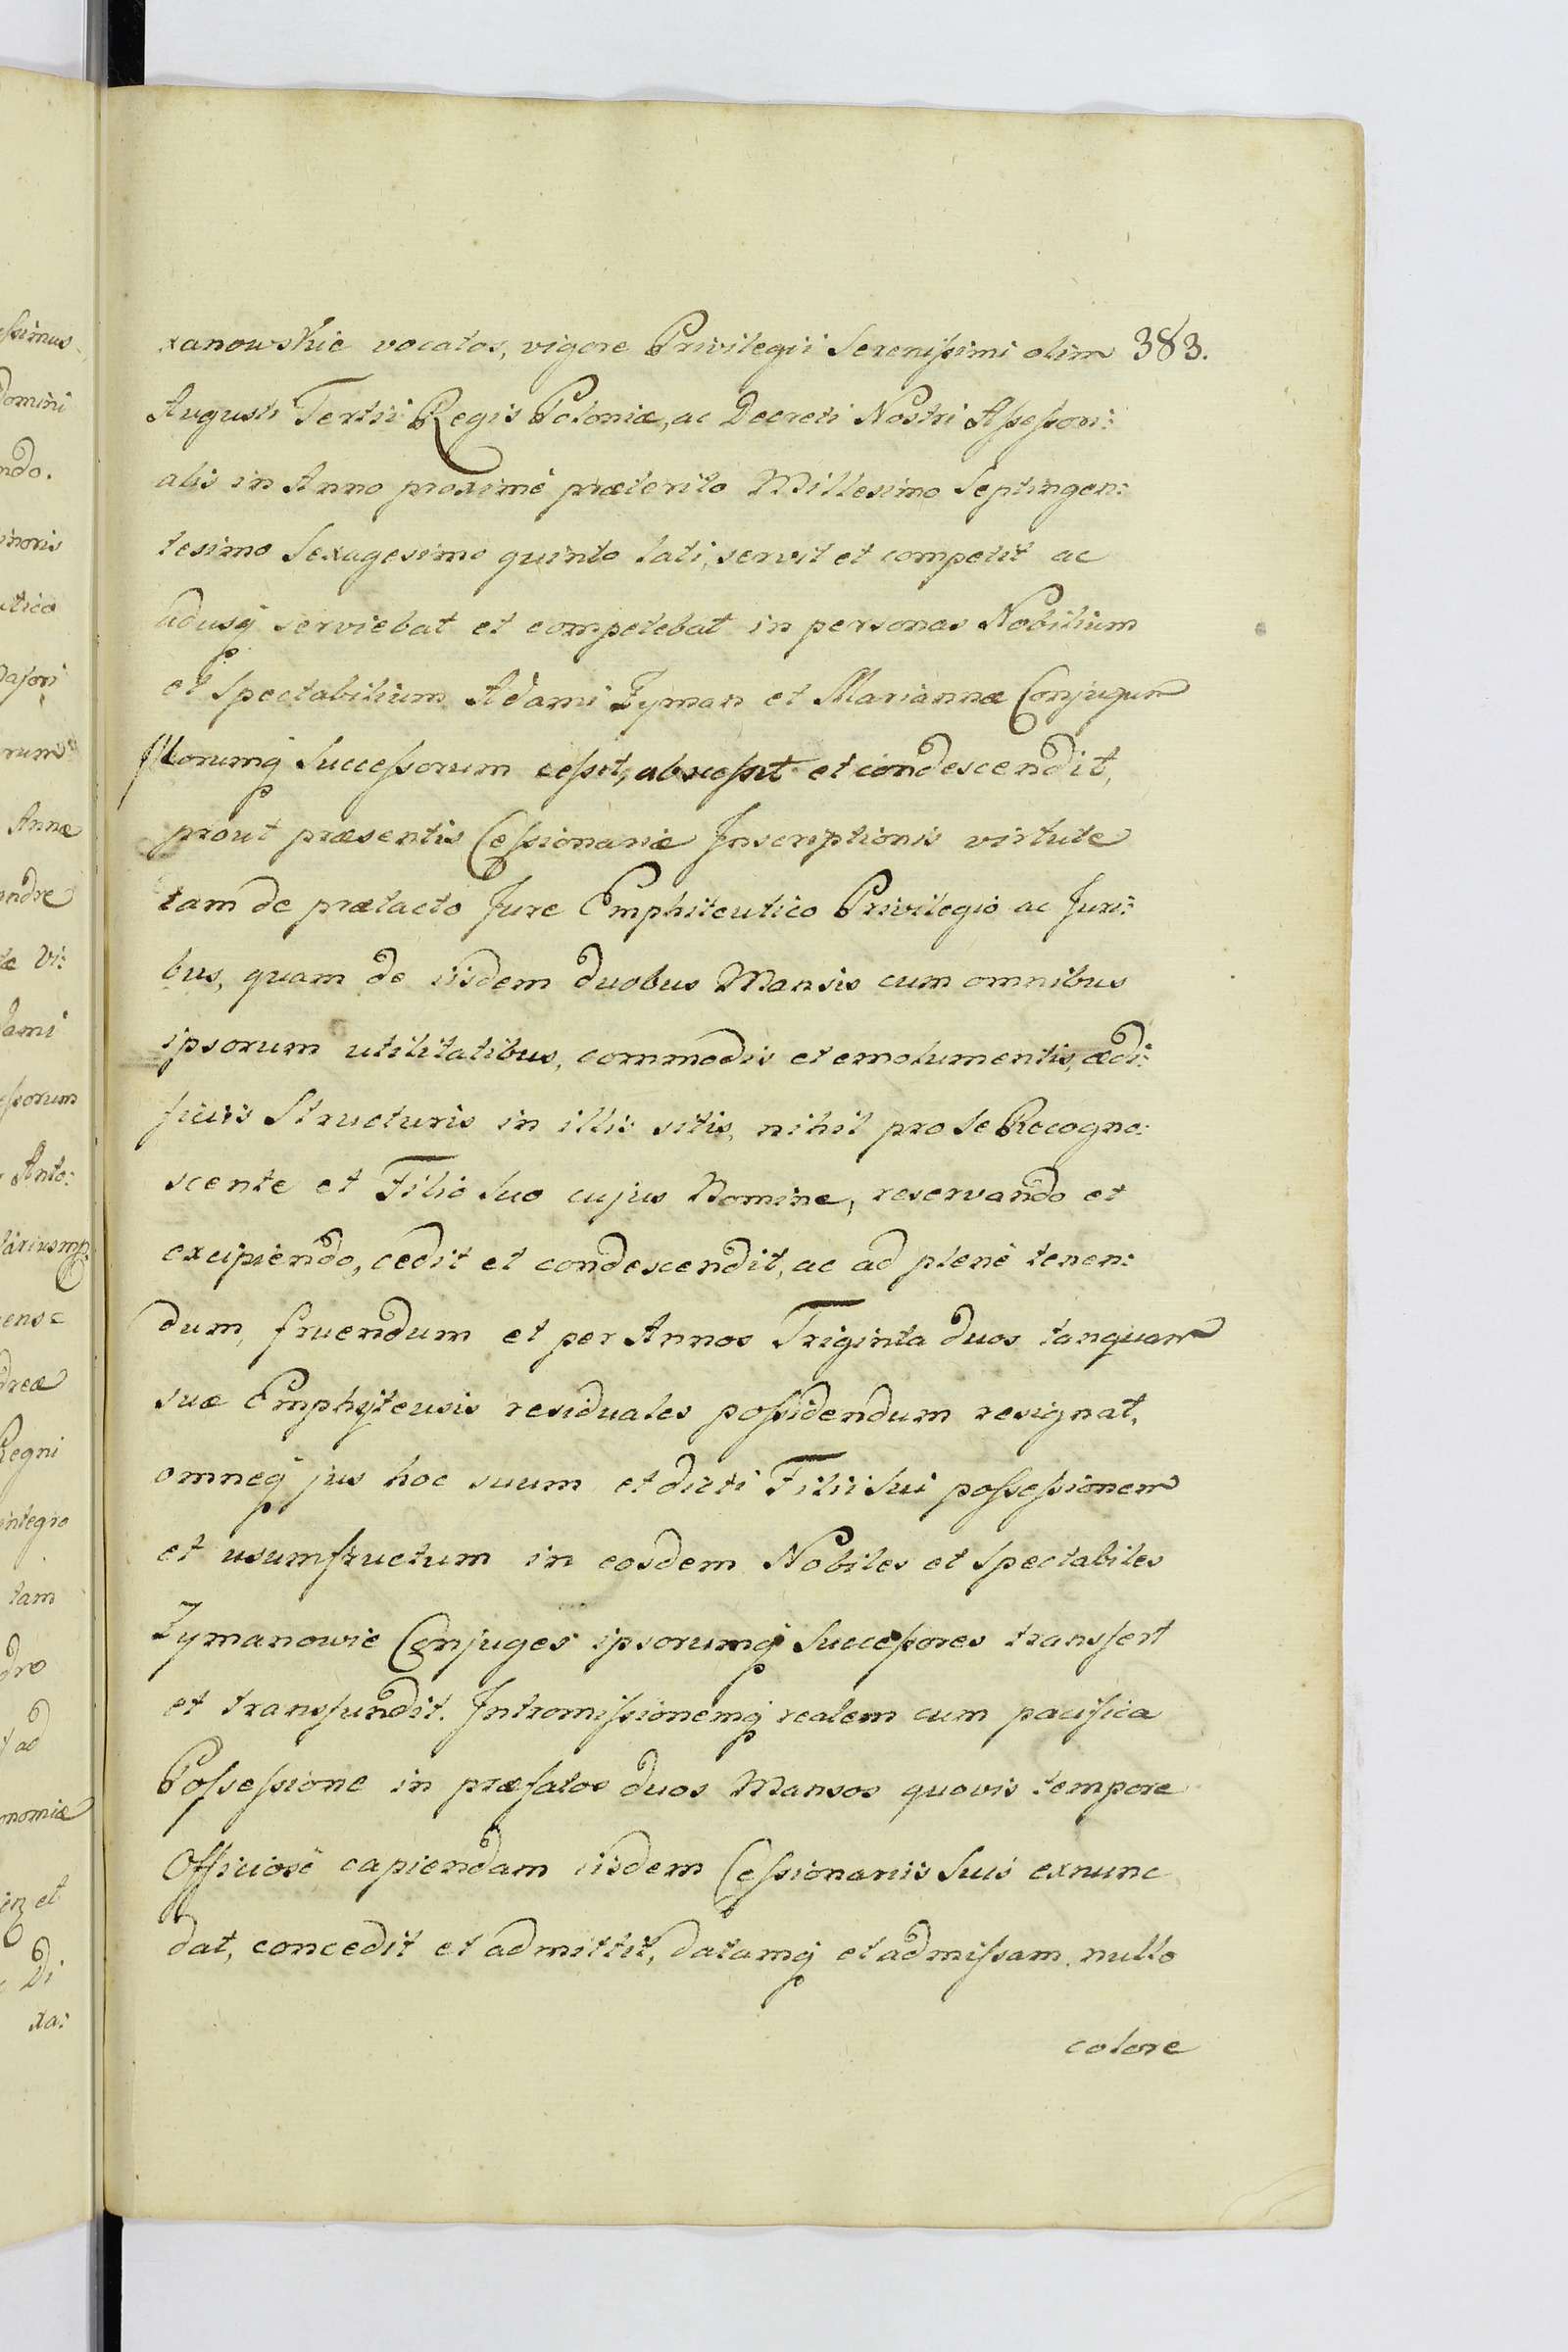 xanowskie vocatos, vigore Privilegii Serenissimi olim 383.
Augusti Tertii Regis Poloniæ, ac Decreti Nostri Assessori:
alis in Anno proximè præterito Millesimo Septingen:
tesimo Sexagesimo quinto lati, servit et competit ac
adusq serviebat et competebat in personas Nobilium
et Spectabilium Adami Zyman et Mariannæ Conjugum
Illorumq Successorum cessit, abscessit et condescendit,
prout præsentis Cessionariæ Inscriptionis virtute
tam de prætacto Jure Emphiteutico Privilegio ac Juri:
bus, quam de iisdem duobus Mansis cum omnibus
ipsorum utilitatibus, commodis et emolumentis, ædi:
ficiis Structuris in illis sitis, nihil pro se Recogno:
scente et Filio Suo cujus Nomine, reservando et
excipiendo, cedit et condescendit, ac ad plenè tenen:
dum, fruendum et per Annos Triginta duos tanquam
suæ Emphyteusis residuales possidendum resignat,
omneq jus hoc suum et dicti Filii Sui possessionem
et usumfructum in eosdem Nobiles et Spectabiles
Zymanowie Conjuges ipsorumq Successores transfert
et transfundit. Intromissionemq realem cum pacifica
Possessione in præfatos duos Mansos quovis tempore
Officiosè capiendam iisdem Cessionariis Suis exnunc
dat, concedit et admittit, datamq et admissam nullo
colore
ssimus
Domini
ndo.
inoris
utico
Majori
rum
Annæ
andre
tæ Vi:
dami
essorum
Anto:
lariusmp
dreæ
Regni
integro
tam
dro
ad
onomiæ
et
Di
xa: